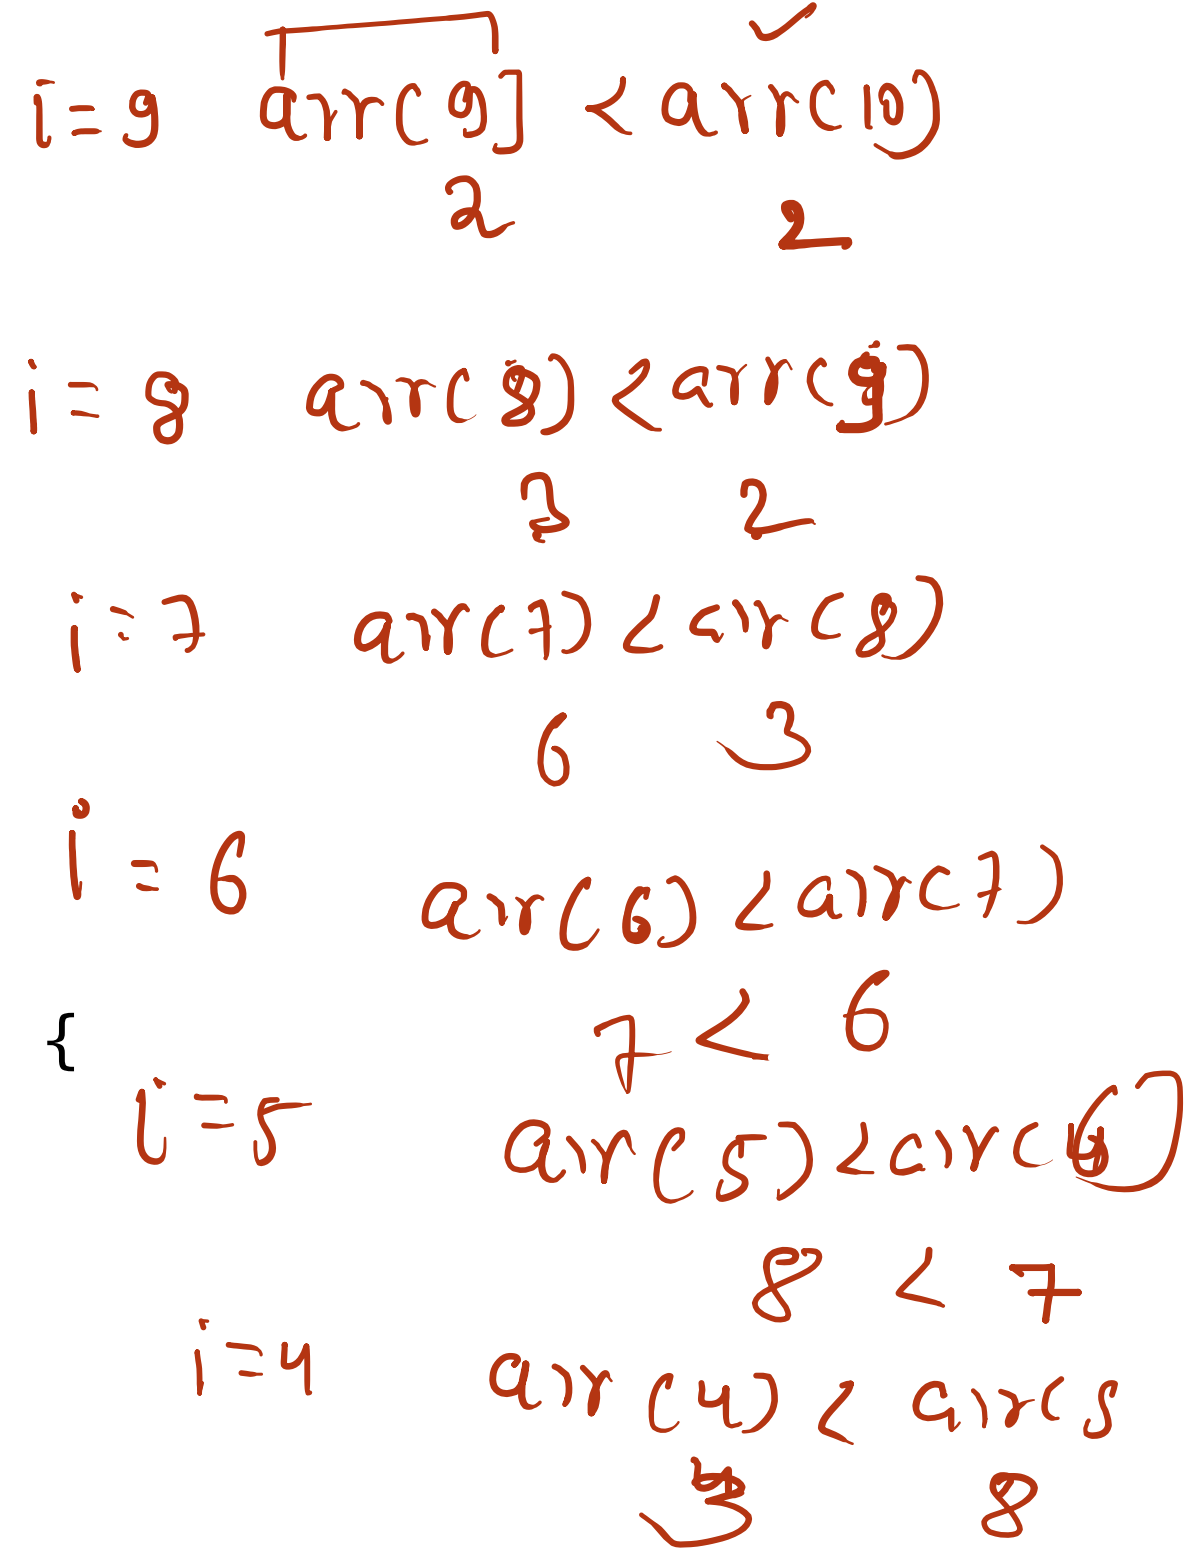 i = 9 arr(9] < arr(10)
2 2
i = 8 arr(8) < arr(9)
3 2
i = 7 arr(7) < arr(8)
6 3
i = 6 arr(6) < arr(7)
7 < 6
{
i = 5 arr(5) < arr(6)
8 < 7
i = 4 arr(4) < arr(5
3 8